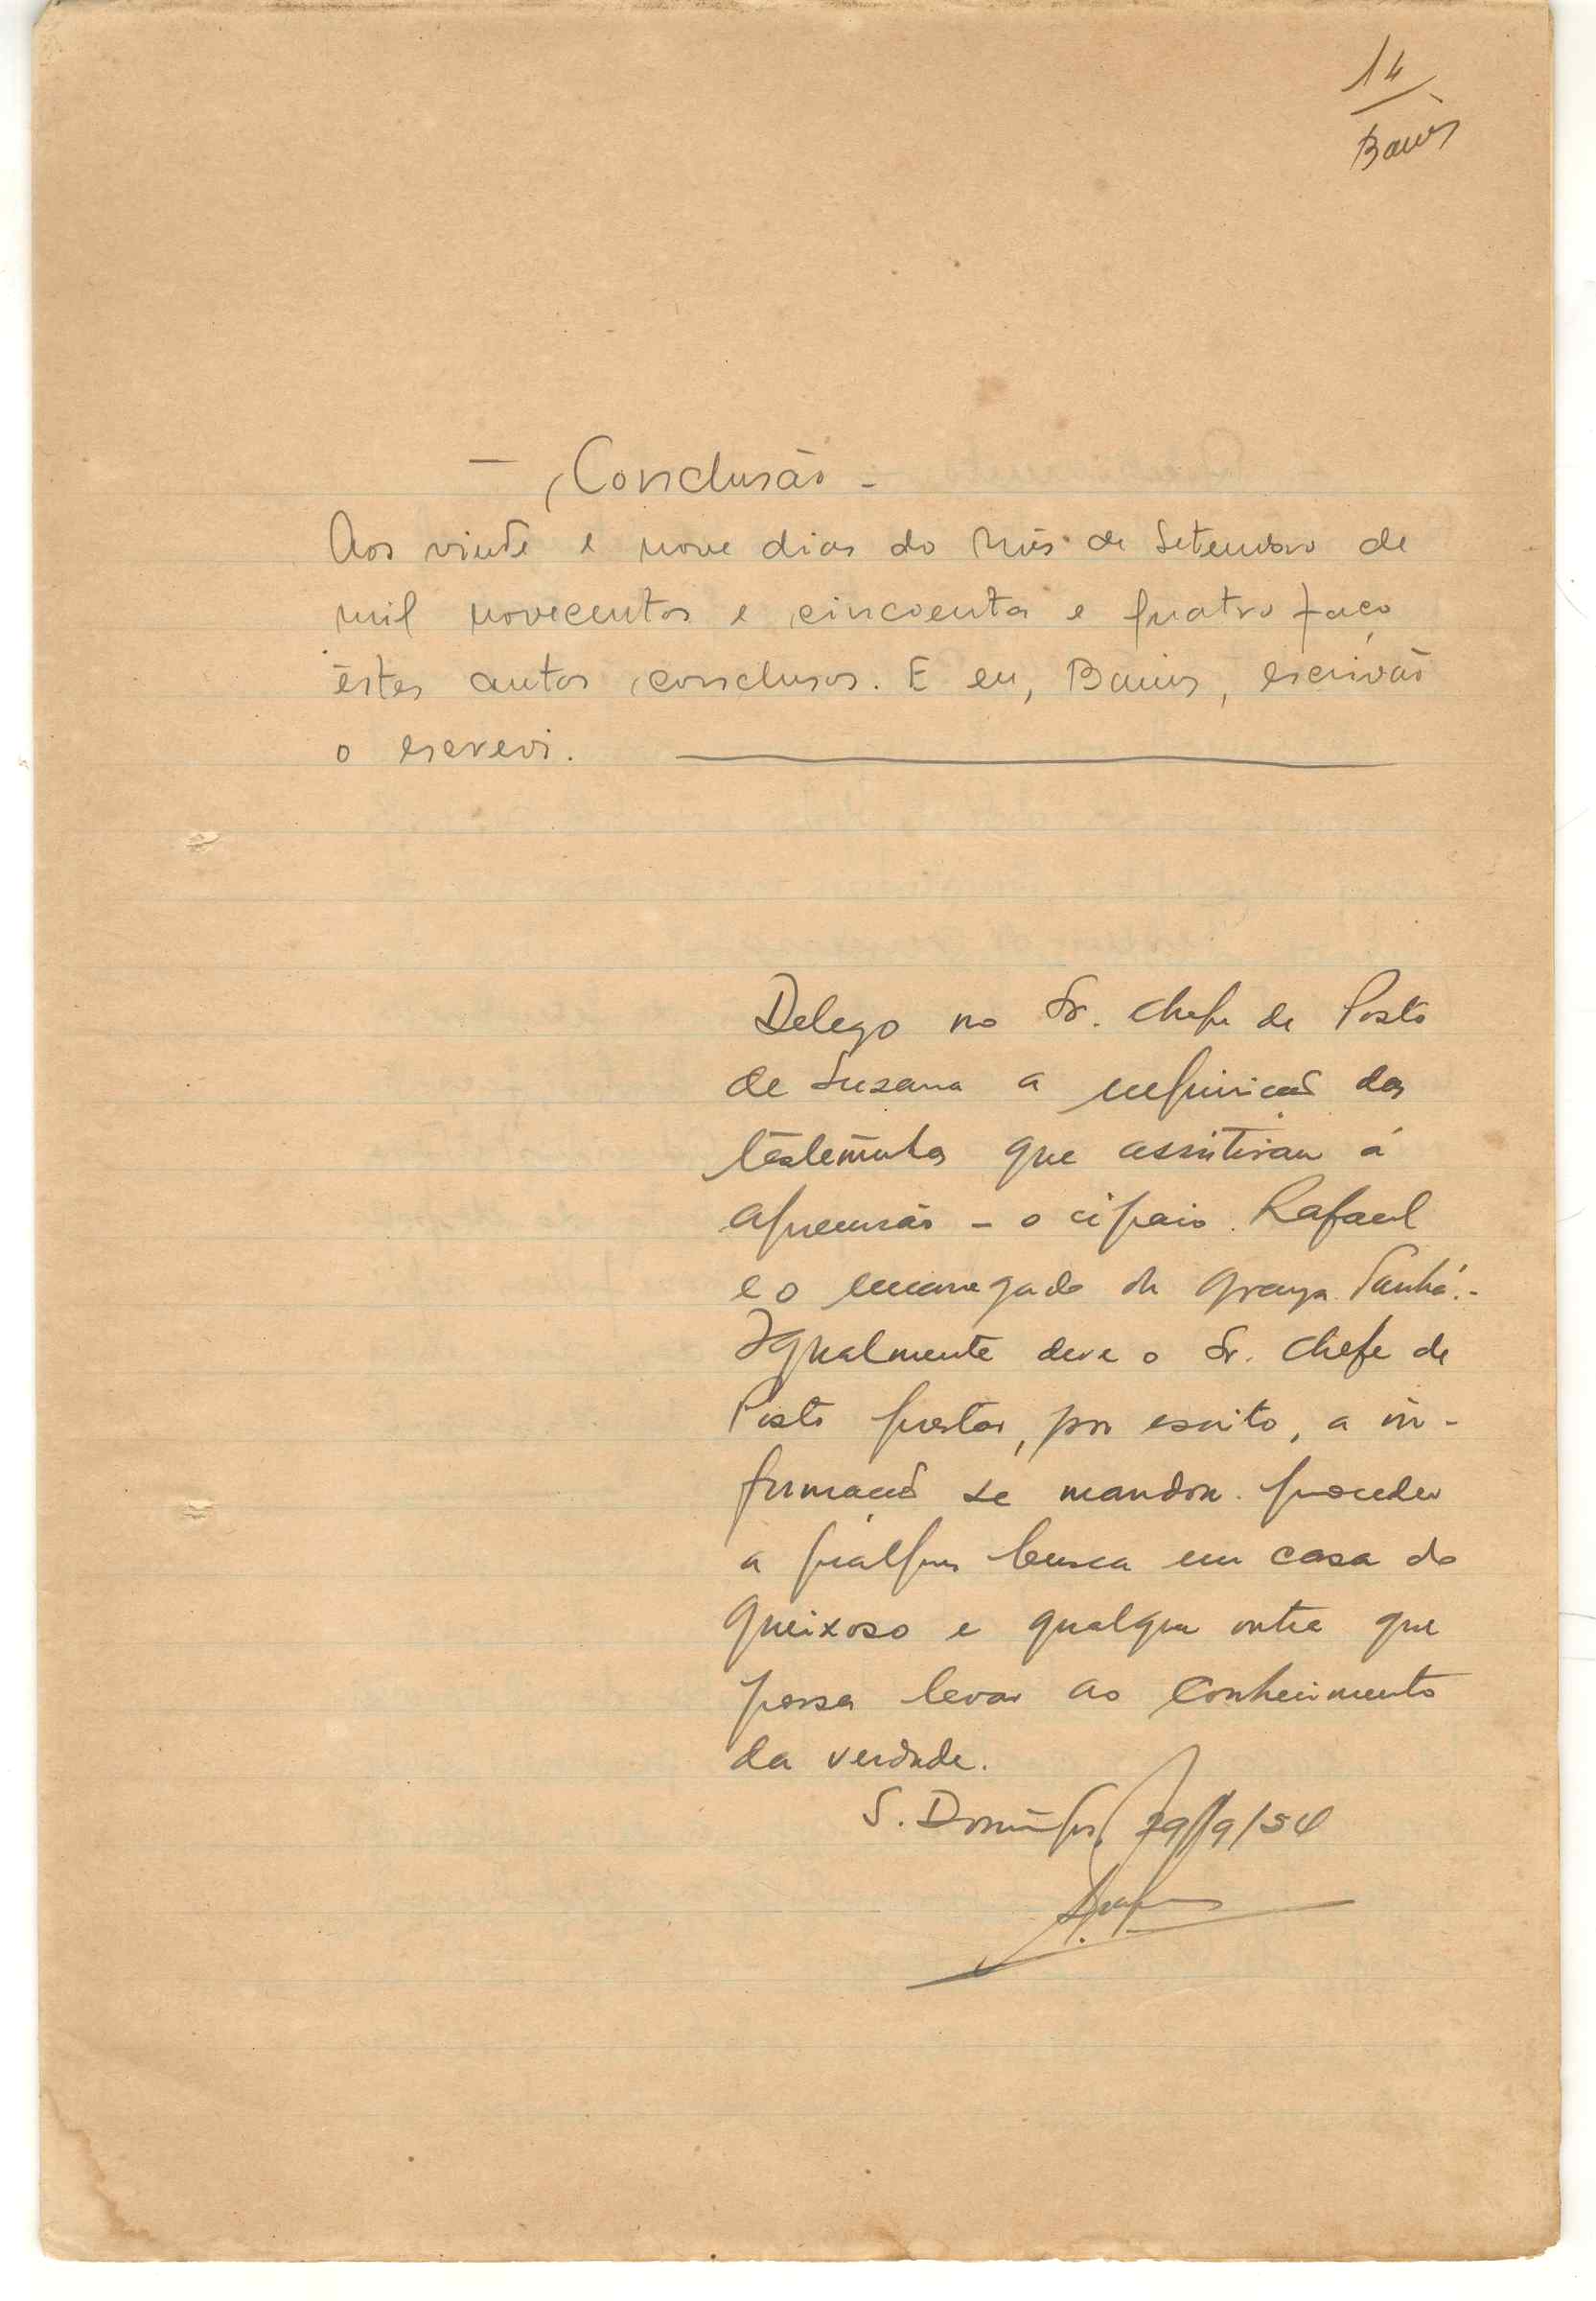 14
— Conclusão —
Aos vinte e nove dias do mês de Setembro de
mil novecentos e cincoenta e quatro faço
êstes autos conclusos. E eu, , escrivão
o escrevi.
Delego no Sr. Chefe de Posto
de Suzana a inquirição das
testemunhas que assistiram á
apreensão - o cipaio Rafael
e o encarregado da granja Sanhá.-
Igualmente deve o Sr. Chefe de
Posto prestar, por escrito, a in-
formação se mandou proceder
a qualquer busca em casa do
queixoso e qualquer outra que
possa levar ao conhecimento
da verdade.
S. Domingos, 29/9/54